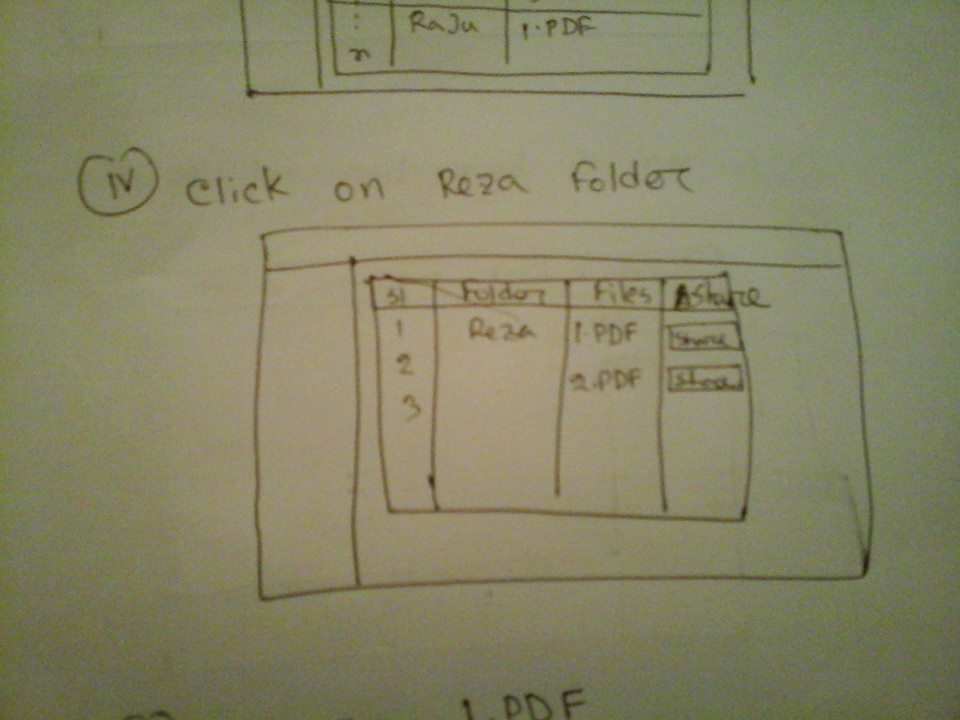 : RaJu 1.PDF
n
IV click on Reza folder
Sl Folder Files Share
1 Reza 1.PDF Share
2 2.PDF Share
3
1.PDF